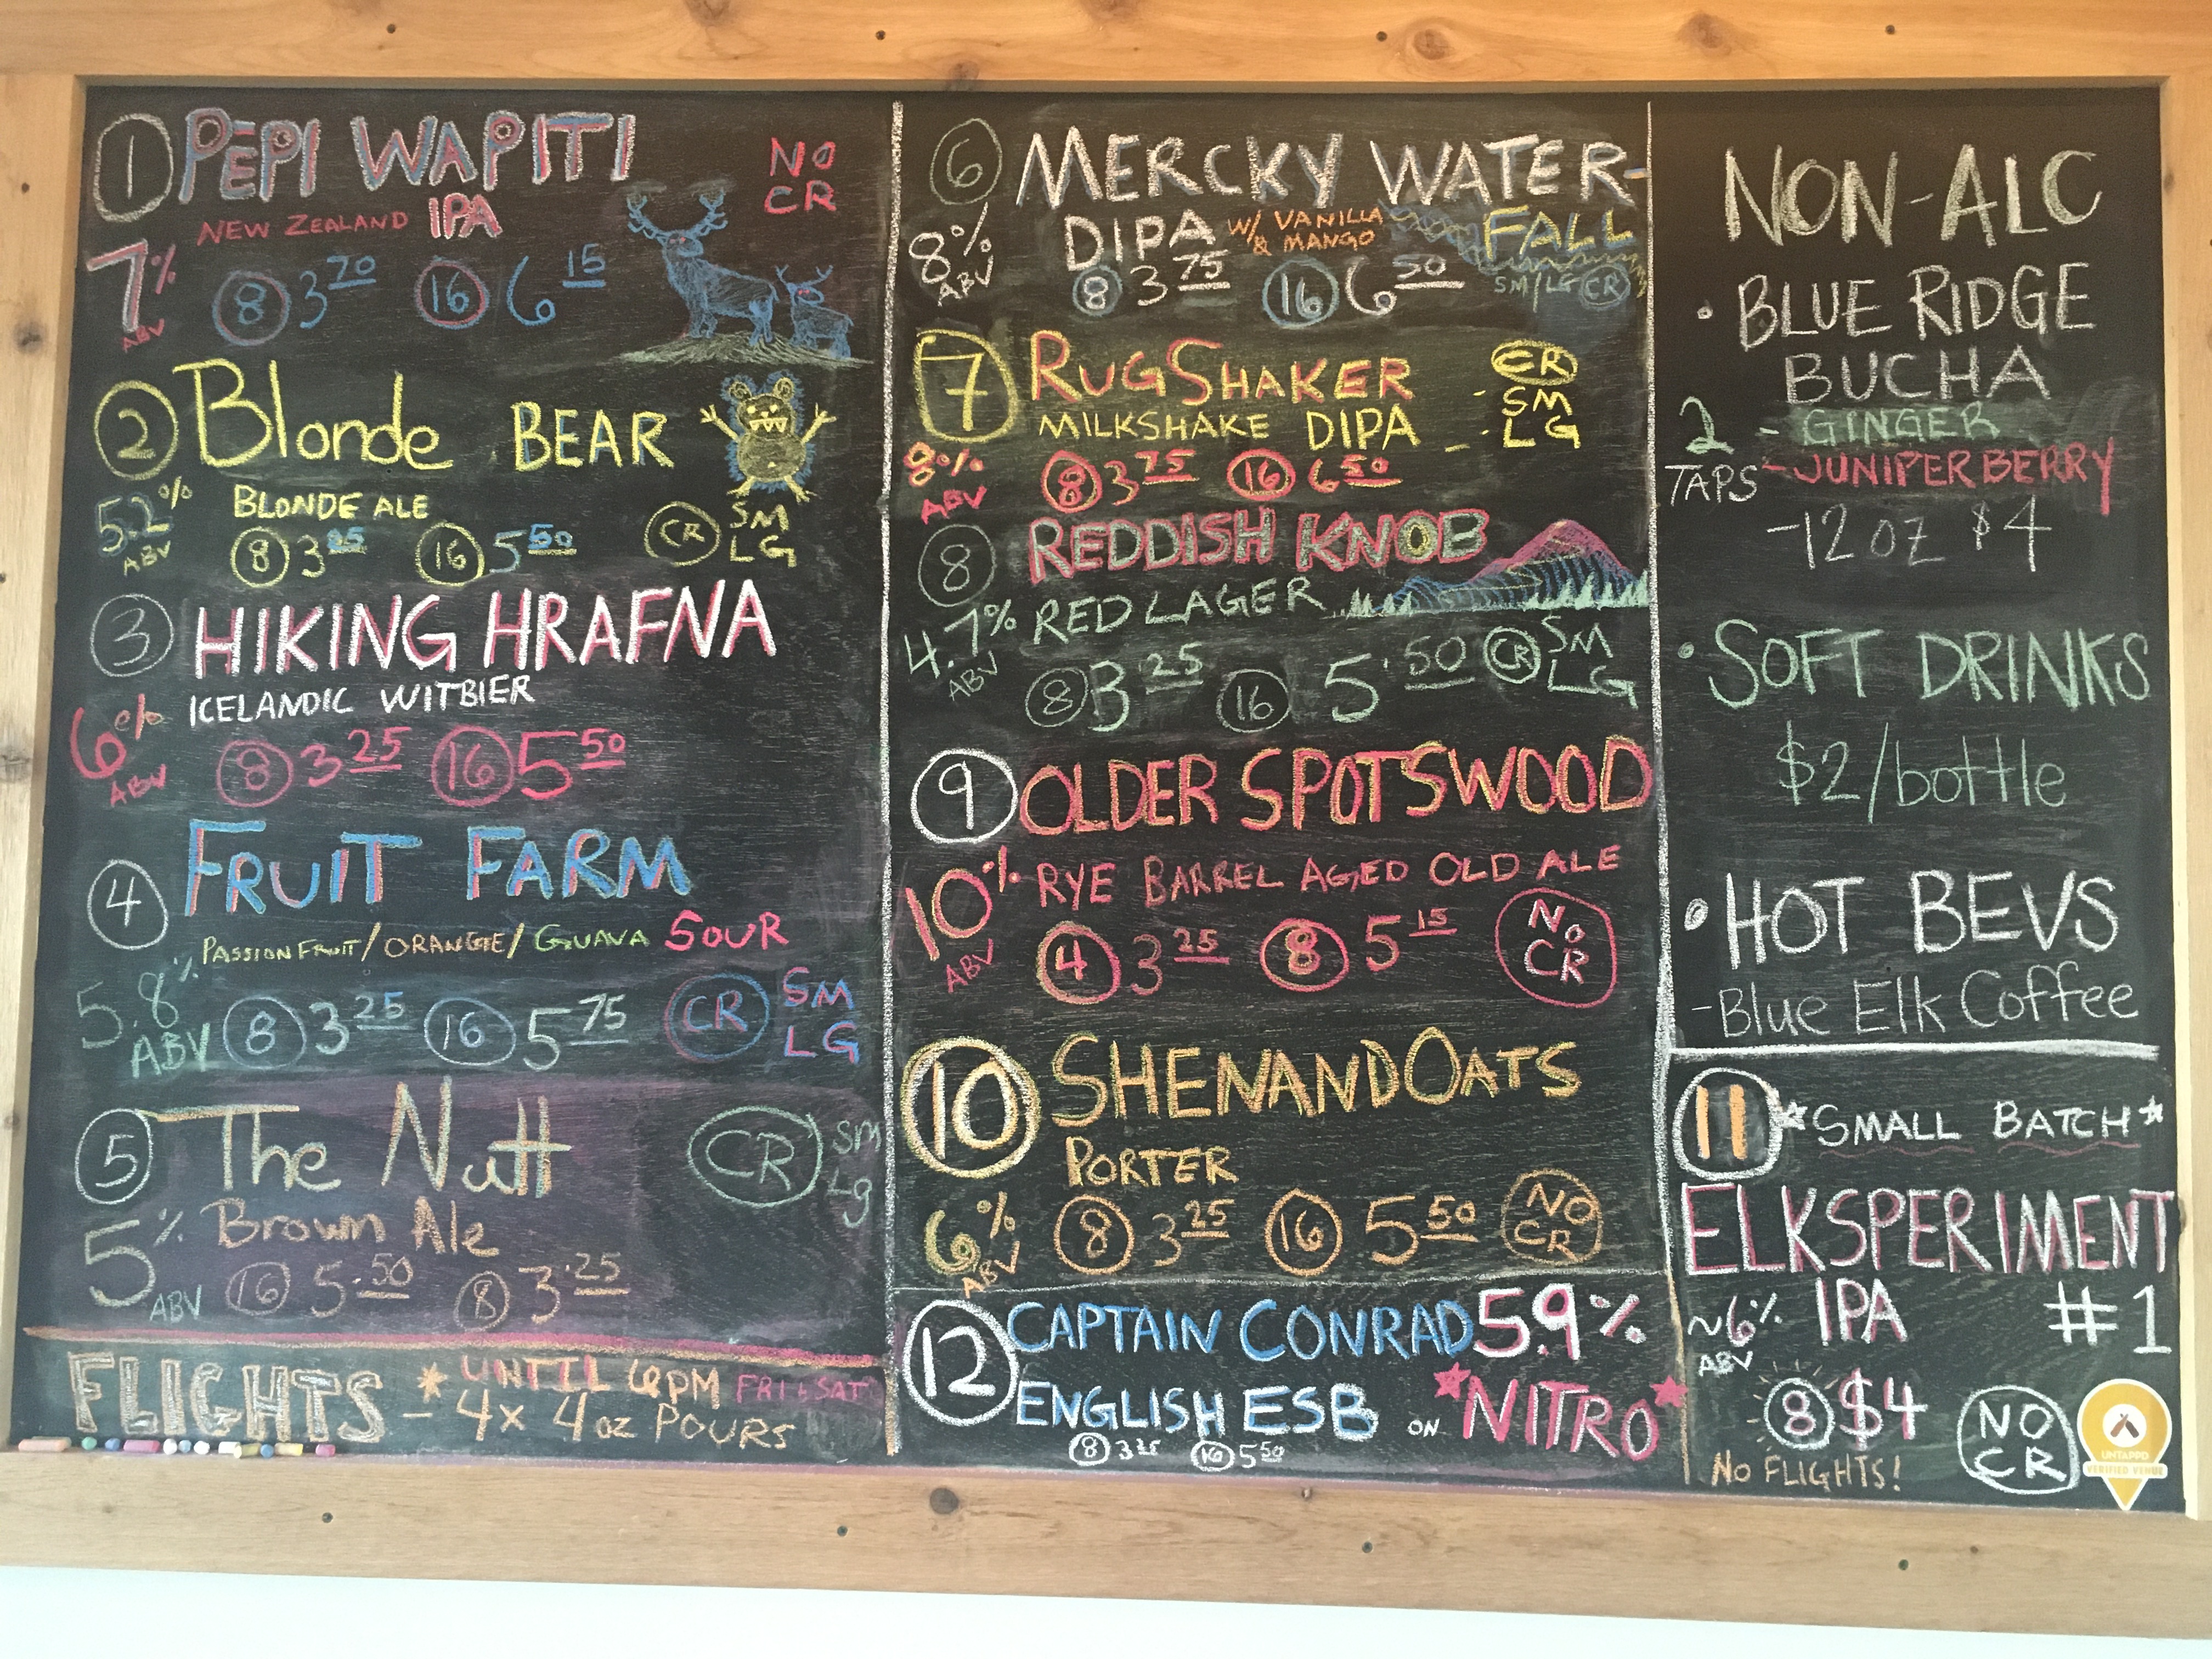 1 PEPI WAPITI
NO CR
NEW ZEALAND IPA
7% ABV
8 3.70 16 6.15
2 Blonde BEAR
BLONDE ALE
5.2% ABV
8 3.25 16 5.50
CR SM LG
3 HIKING HRAFNA
ICELANDIC WITBIER
6% ABV
8 3.25 16 5.50
4 FRUIT FARM
PASSIONFRUIT/ORANGE/GUAVA SOUR
5.8% ABV
8 3.25 16 5.75
CR SM LG
5 The Nutt
CR SM Lg
Brown Ale
5% ABV
16 5.50 8 3.25
FLIGHTS * UNTIL 6PM FRI & SAT
- 4x 4oz POURS
6 MERCKY WATER-
FALL
DIPA W/ VANILLA & MANGO
8% ABV
8 3.75 16 6.50
SM/LG CR
7 RUGSHAKER
MILKSHAKE DIPA
- CR
- SM
- LG
8% ABV
8 3.75 16 6.50
8 REDDISH KNOB
RED LAGER
4.7% ABV
8 3.25 16 5.50
CR SM LG
9 OLDER SPOTSWOOD
10% ABV
RYE BARREL AGED OLD ALE
4 3.25 8 5.15
NO CR
10 SHENANDOATS
PORTER
6% ABV
8 3.25 16 5.50
NO CR
12 CAPTAIN CONRAD 5.9%
ENGLISH ESB ON *NITRO*
8 3.25 16 5.50
NON-ALC
• BLUE RIDGE
BUCHA
2 TAPS
- GINGER
- JUNIPER BERRY
-12 oz $4
• SOFT DRINKS
$2/bottle
• HOT BEVS
-Blue Elk Coffee
11 *SMALL BATCH*
ELKSPERIMENT
IPA #1
~6% ABV
8 $4
NO FLIGHTS!
NO CR
UNTAPPD
VERIFIED VENUE